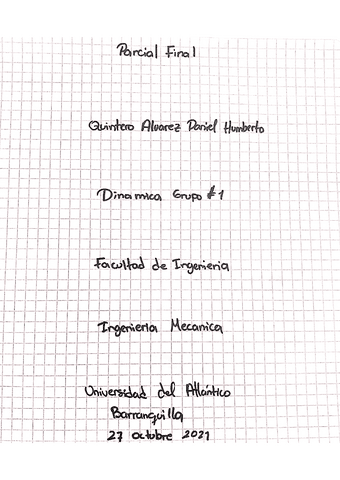 Parcial Final
Quintero Alvarez Daniel Humberto
Dinamica Grupo #1
Facultad de Ingenieria
Ingenieria Mecanica
Universidad del Atlántico
Barranquilla
27 octubre 2021